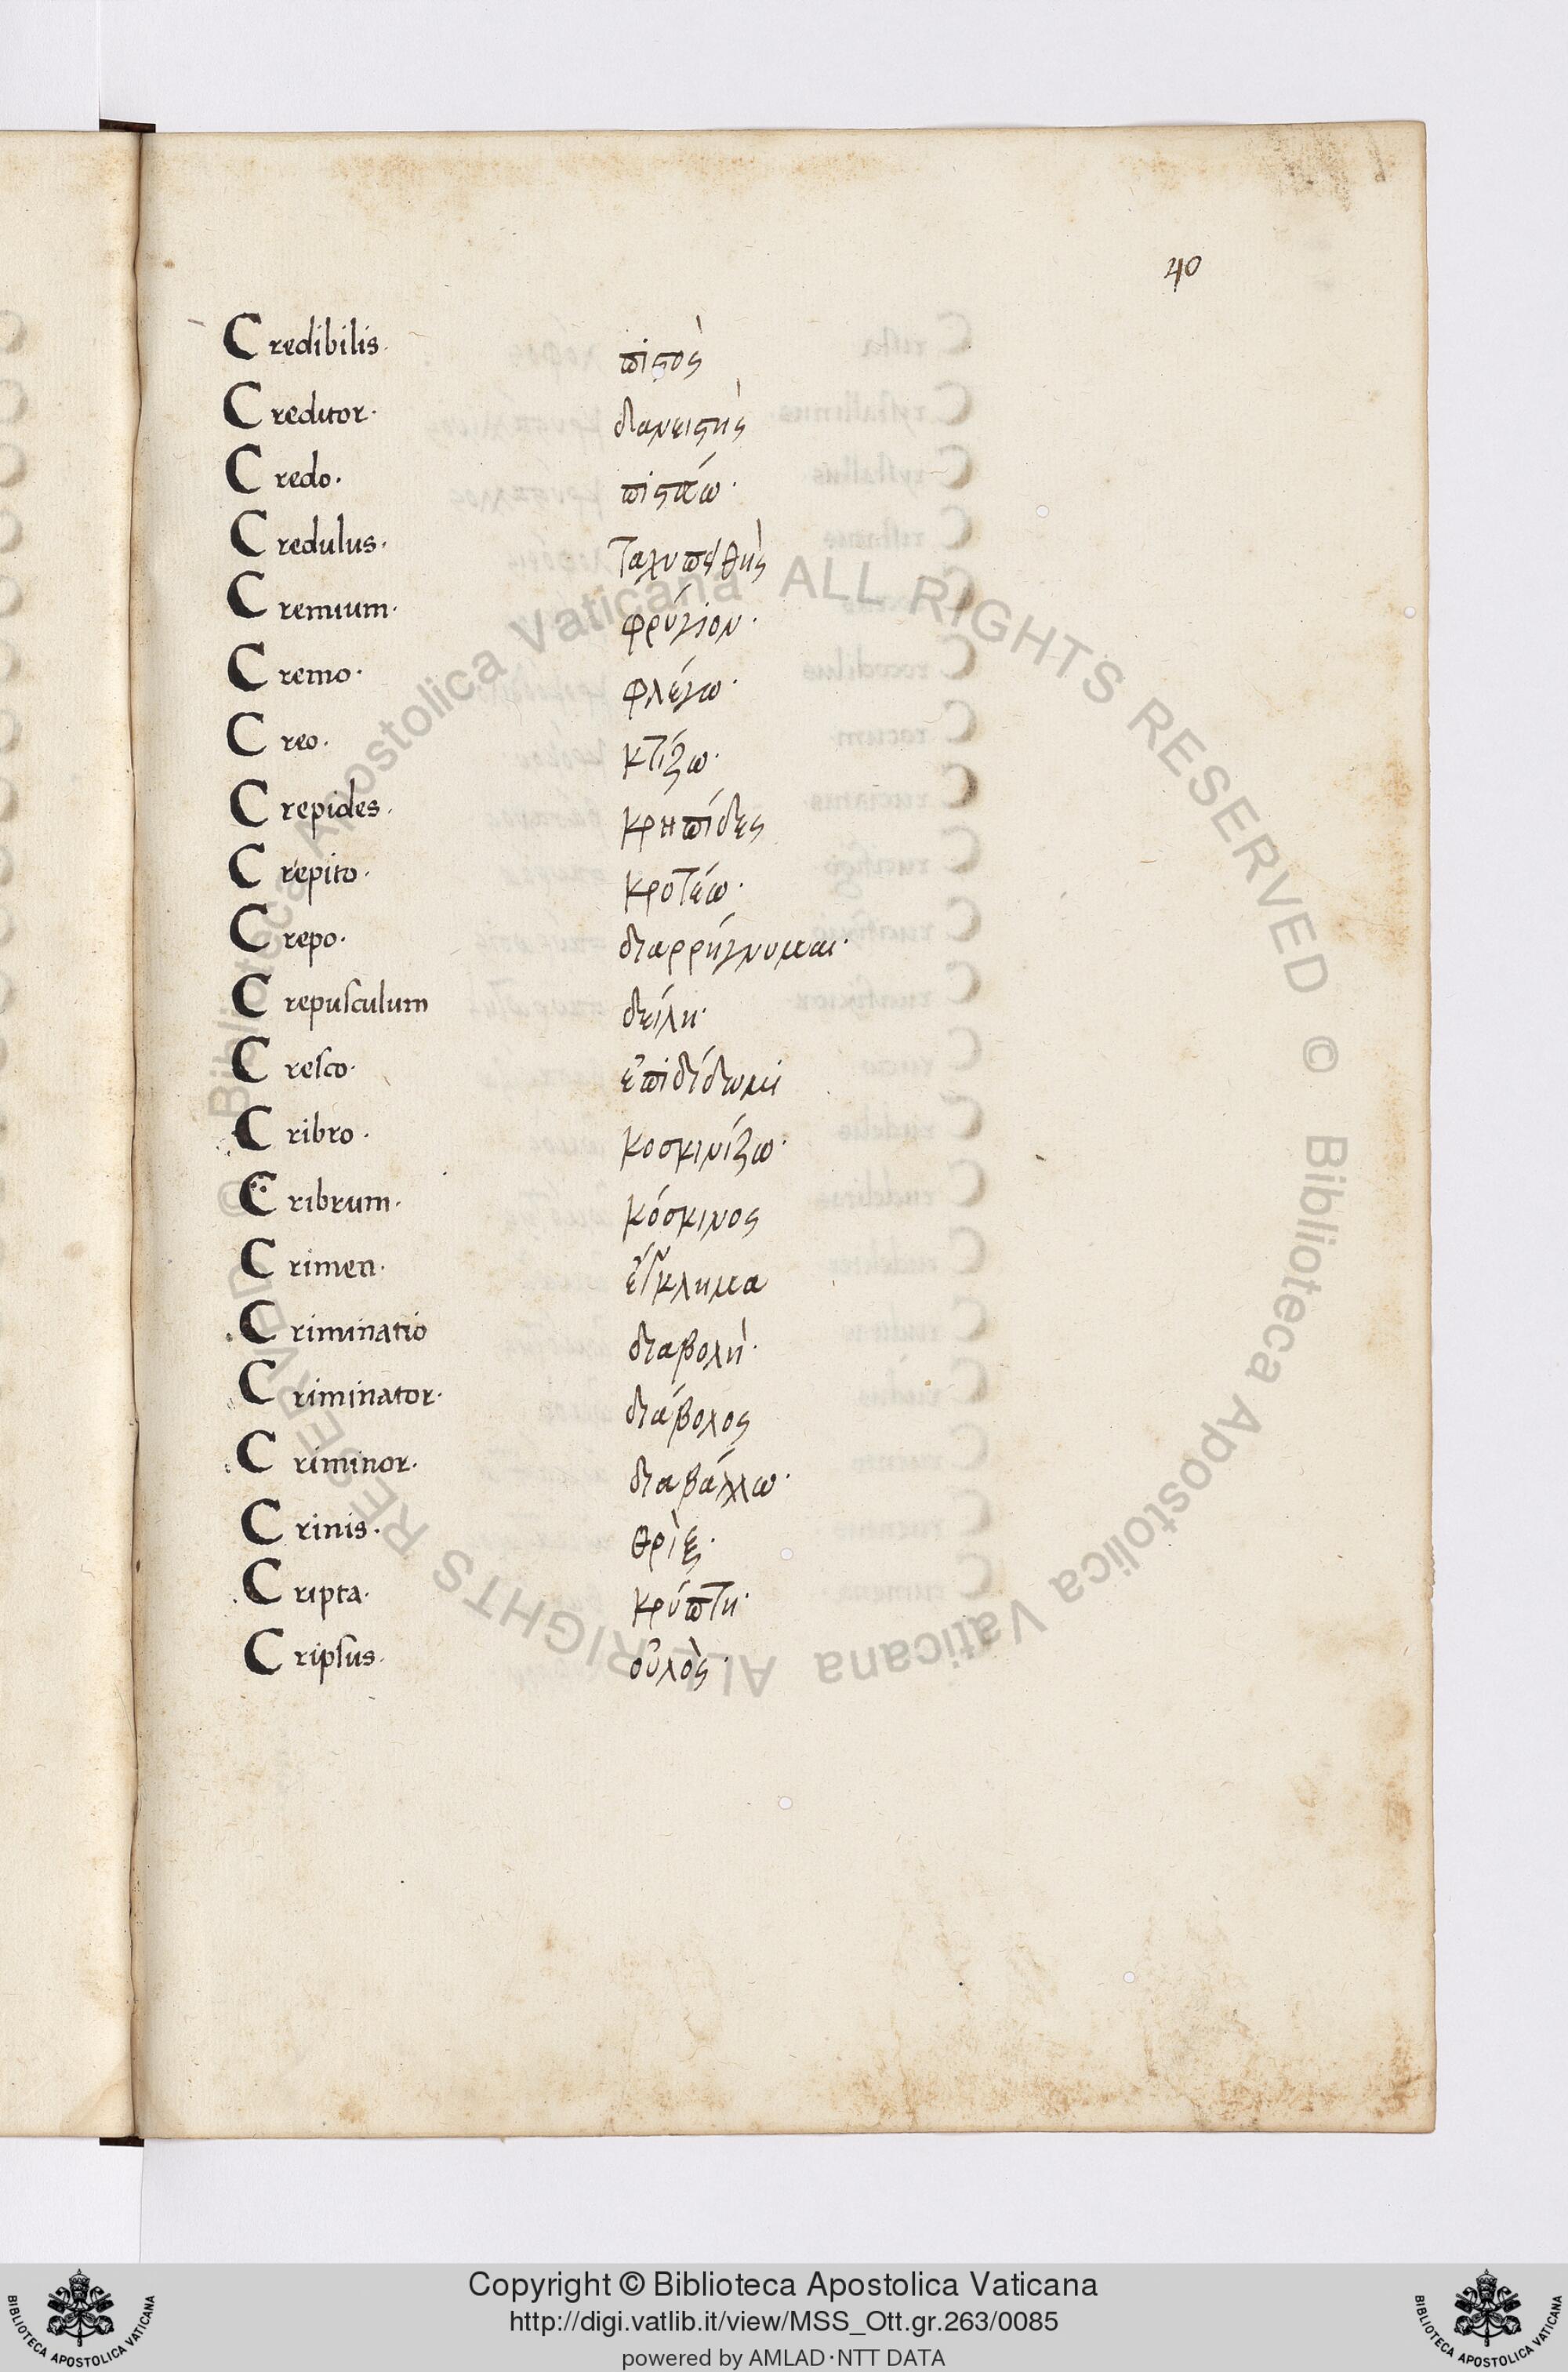 40
Credibilis. πιστὸς
Creditor. δανειστὴς
Credo. πιστεύω.
Credulus. ταχυπειθὴς
Cremium. φρύγιον.
Cremo. φλέγω.
Creo. κτίζω.
Crepides. κρηπίδες
Crepito. κροτέω.
Crepo. διαρρήγνυμαι.
Crepusculum δείλη.
Cresco. ἐπιδίδωμι
Cribro. κοσκινίζω.
Cribrum. κόσκινος
Crimen. ἔγκλημα
Criminatio διαβολὴ.
Criminator. διάβολος
Criminor. διαβάλλω.
Crinis. θρὶξ.
Cripta. κρύπτη.
Cripsus. οὐλὸς.
© Biblioteca Apostolica Vaticana ALL RIGHTS RESERVED © Biblioteca Apostolica Vaticana ALL RIGHTS RESERVED
Copyright © Biblioteca Apostolica Vaticana
http://digi.vatlib.it/view/MSS_Ott.gr.263/0085
powered by AMLAD·NTT DATA
BIBLIOTECA APOSTOLICA VATICANA
BIBLIOTECA APOSTOLICA VATICANA